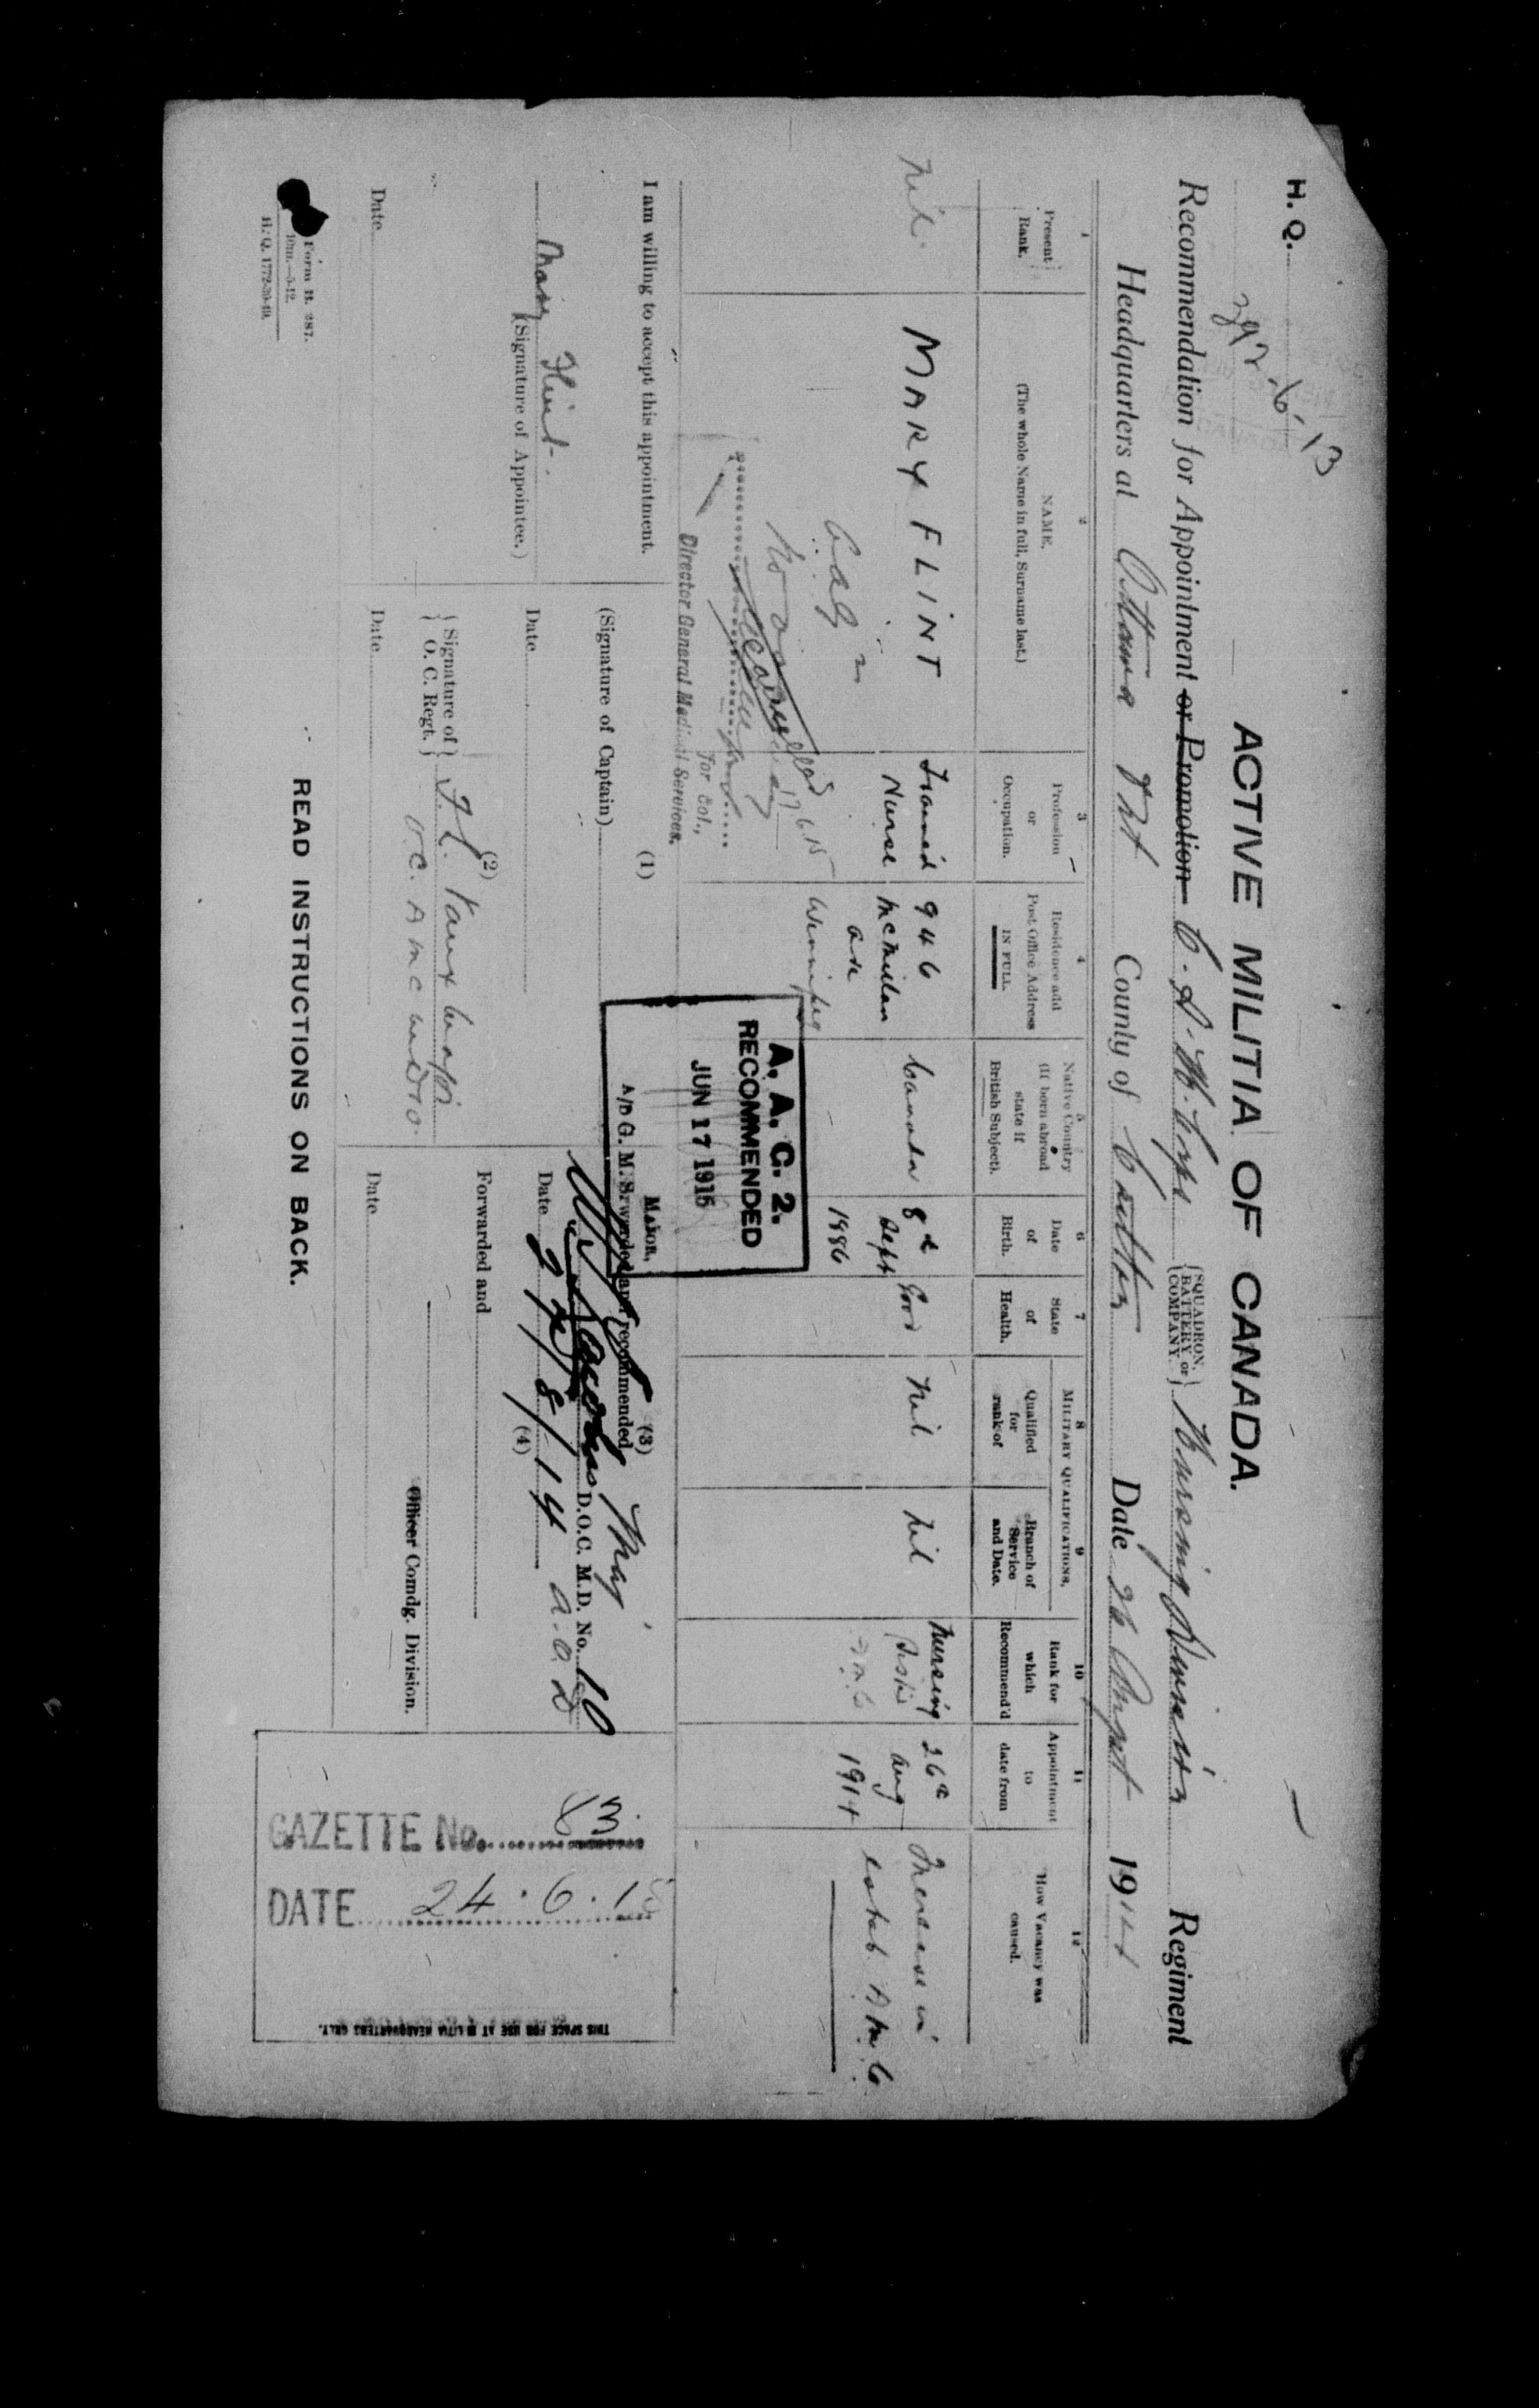 H. Q.
ACTIVE MILITIA OF CANADA.
Recommendation for Appointment or Promotion C. A. M. Corps {SQUADRON, BATTERY or COMPANY} Nursing Regiment
Headquarters at Ottawa Ont County of Carleton Date 26 August 1914
1
Present Rank.
2
NAME.
(The whole Name in full, Surname last.)
3
Profession or Occupation.
4
Residence and Post Office Address IN FULL.
5
Native Country (If born abroad state if British Subject).
6
Date of Birth.
7
State of Health.
MILITARY QUALIFICATIONS.
8
Qualified for rank of
9
Branch of Service and Date.
10
Rank for which Recommend'd
11
Appointment to date from
12
How Vacancy was caused.
Nil.
MARY FLINT
Trained Nurse
946 McMillan ave Winnipeg
Canada
8th Sept 1886
Good
Nil
Nil
Nursing Sister
26th Aug 1914
Increase in estab. A.M.C.
17.6.15
for Col.,
Director General Medical Services.
A. A. G. 2.
RECOMMENDED
JUN 17 1915
Major,
A/D G. M. S.
I am willing to accept this appointment.
Mary Flint.
(Signature of Appointee.)
Date
(1)
(Signature of Captain)
Date
(2)
{Signature of O. C. Regt.}
O.C. AMC MD 10.
Date
(3)
Forwarded and recommended
D.O.C. M.D. No. 10
Date 27/8/14
(4)
Forwarded and
Officer Comdg. Division.
Date
GAZETTE No. 83
DATE 24.6.15
THIS SPACE FOR USE AT MILITIA HEADQUARTERS ONLY.
Form B. 287.
10m.—5-12.
H. Q. 1772-39-49.
READ INSTRUCTIONS ON BACK.